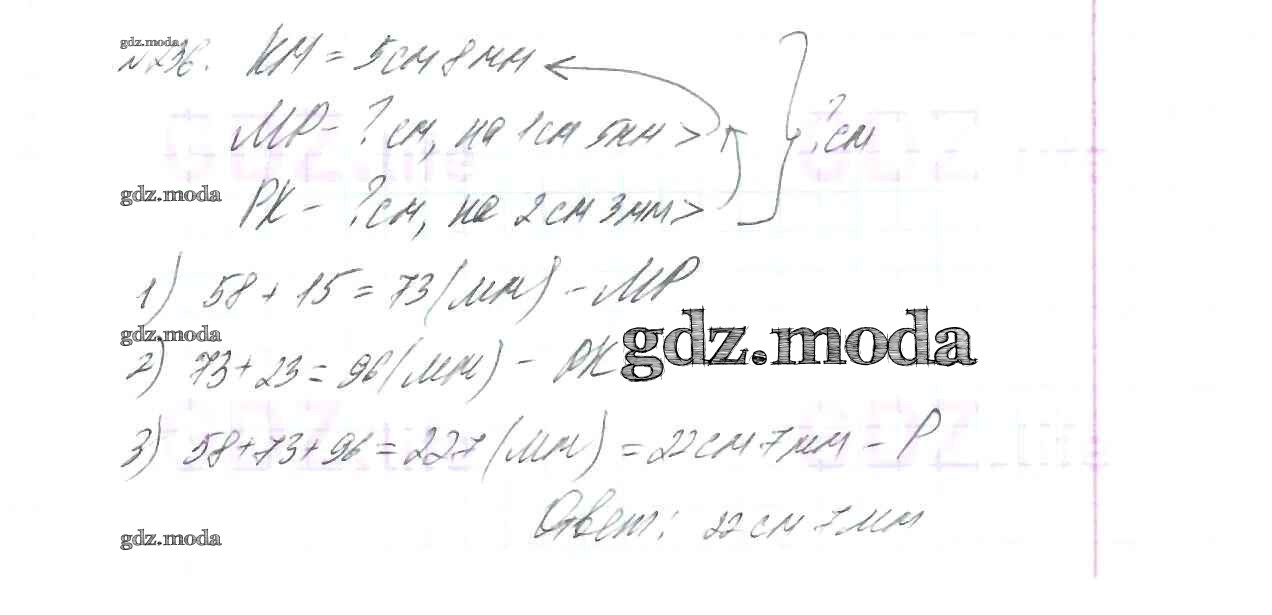 gdz.moda
№236. КМ = 5см 8мм
МР - ? см, на 1см 5мм >
? см
gdz.moda
РК - ? см, на 2см 3мм >
1) 58 + 15 = 73 (мм) - МР
gdz.moda
gdz.moda
2) 73 + 23 = 96 (мм) - РК
3) 58 + 73 + 96 = 227 (мм) = 22см 7мм - Р
Ответ: 22см 7мм
gdz.moda